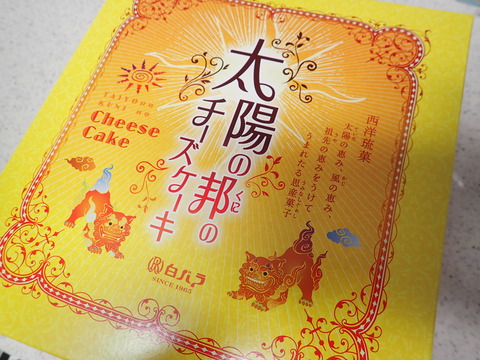 太陽の邦の
くに
チーズケーキ
TAIYOnoo
KUNI no
Cheese
Cake
西洋琉菓
太陽の恵み、風の恵み、
祖先の恵みをうけて
うまれたる恵産菓子
白バラ
SINCE 1965